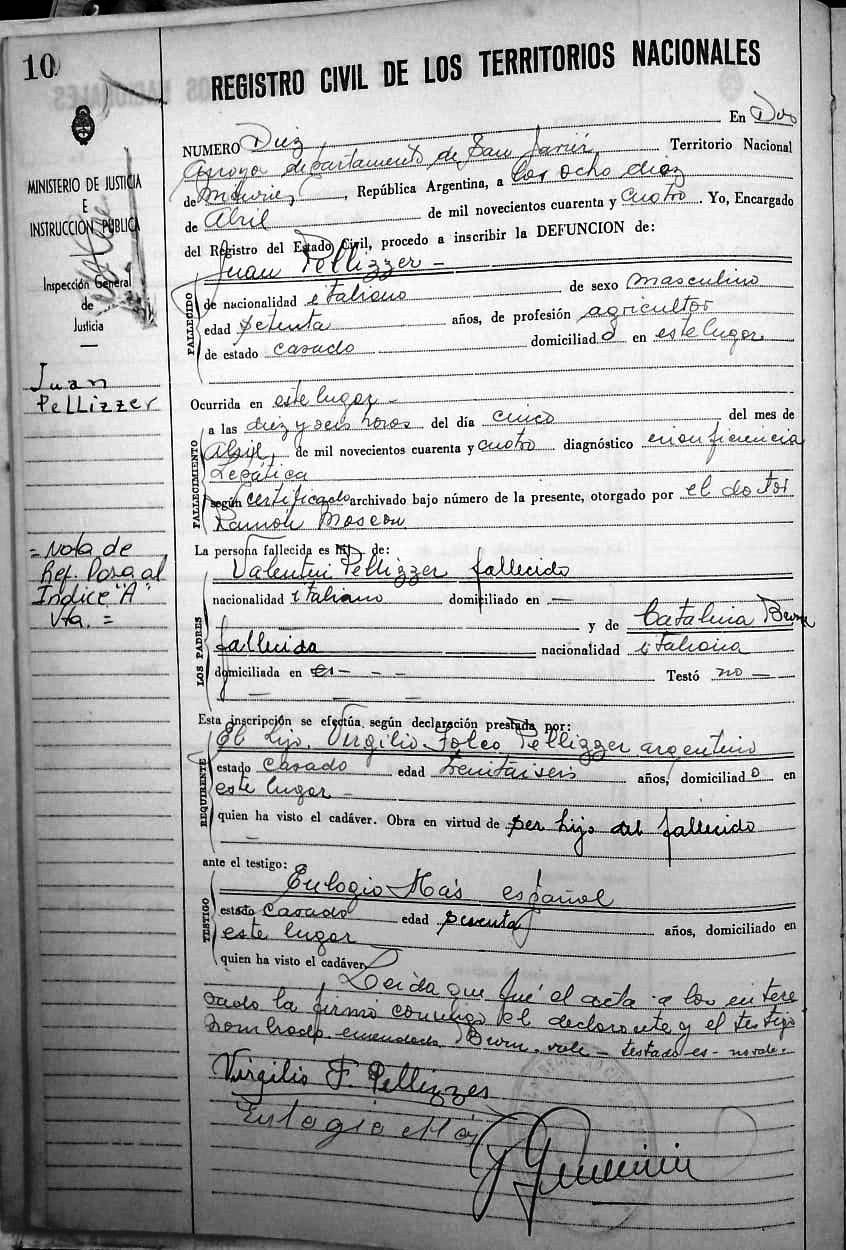 10
REGISTRO CIVIL DE LOS TERRITORIOS NACIONALES
MINISTERIO DE JUSTICIA
E
INSTRUCCIÓN PÚBLICA
Inspección General
de
Justicia
Juan
Pellizzer
= Nota de
Ref. Pasa al
Indice "A"
Vta. =
NUMERO Diez En Dos
Arroyos departamento de San Javier Territorio Nacional
de Misiones, República Argentina, a los ocho dias
de Abril de mil novecientos cuarenta y cuatro. Yo, Encargado
del Registro del Estado Civil, procedo a inscribir la DEFUNCION de:
Juan Pellizzer -
FALLECIDO
de nacionalidad italiano de sexo masculino
edad setenta años, de profesión agricultor
de estado casado domiciliado en este lugar
Ocurrida en este lugar -
FALLECIMIENTO
a las diez y seis horas del día cinco del mes de
Abril, de mil novecientos cuarenta y cuatro diagnóstico insuficiencia
hepática
según certificado archivado bajo número de la presente, otorgado por el doctor
Ramón
La persona fallecida es hijo de:
LOS PADRES
Valentin Pellizzer fallecido
nacionalidad italiano domiciliado en —
y de Catalina
fallecida nacionalidad italiana
domiciliada en es - - - Testó no —
Esta inscripción se efectúa, según declaración prestada por:
REQUIRENTE
El hijo. Virgilio Pellizzer argentino
estado casado edad treintaiseis años, domiciliado en
este lugar -
quien ha visto el cadáver. Obra en virtud de ser hijo del fallecido
ante el testigo:
TESTIGO
Eulogio Más español
estado casado edad años, domiciliado en
este lugar
quien ha visto el cadáver
Leida que fué el acta a los intere
sado la firmó conmigo el declarante y el testigo
nombrado. enmendado vale - testado - es - no vale.
Virgilio F. Pellizzer
Eulogio Más